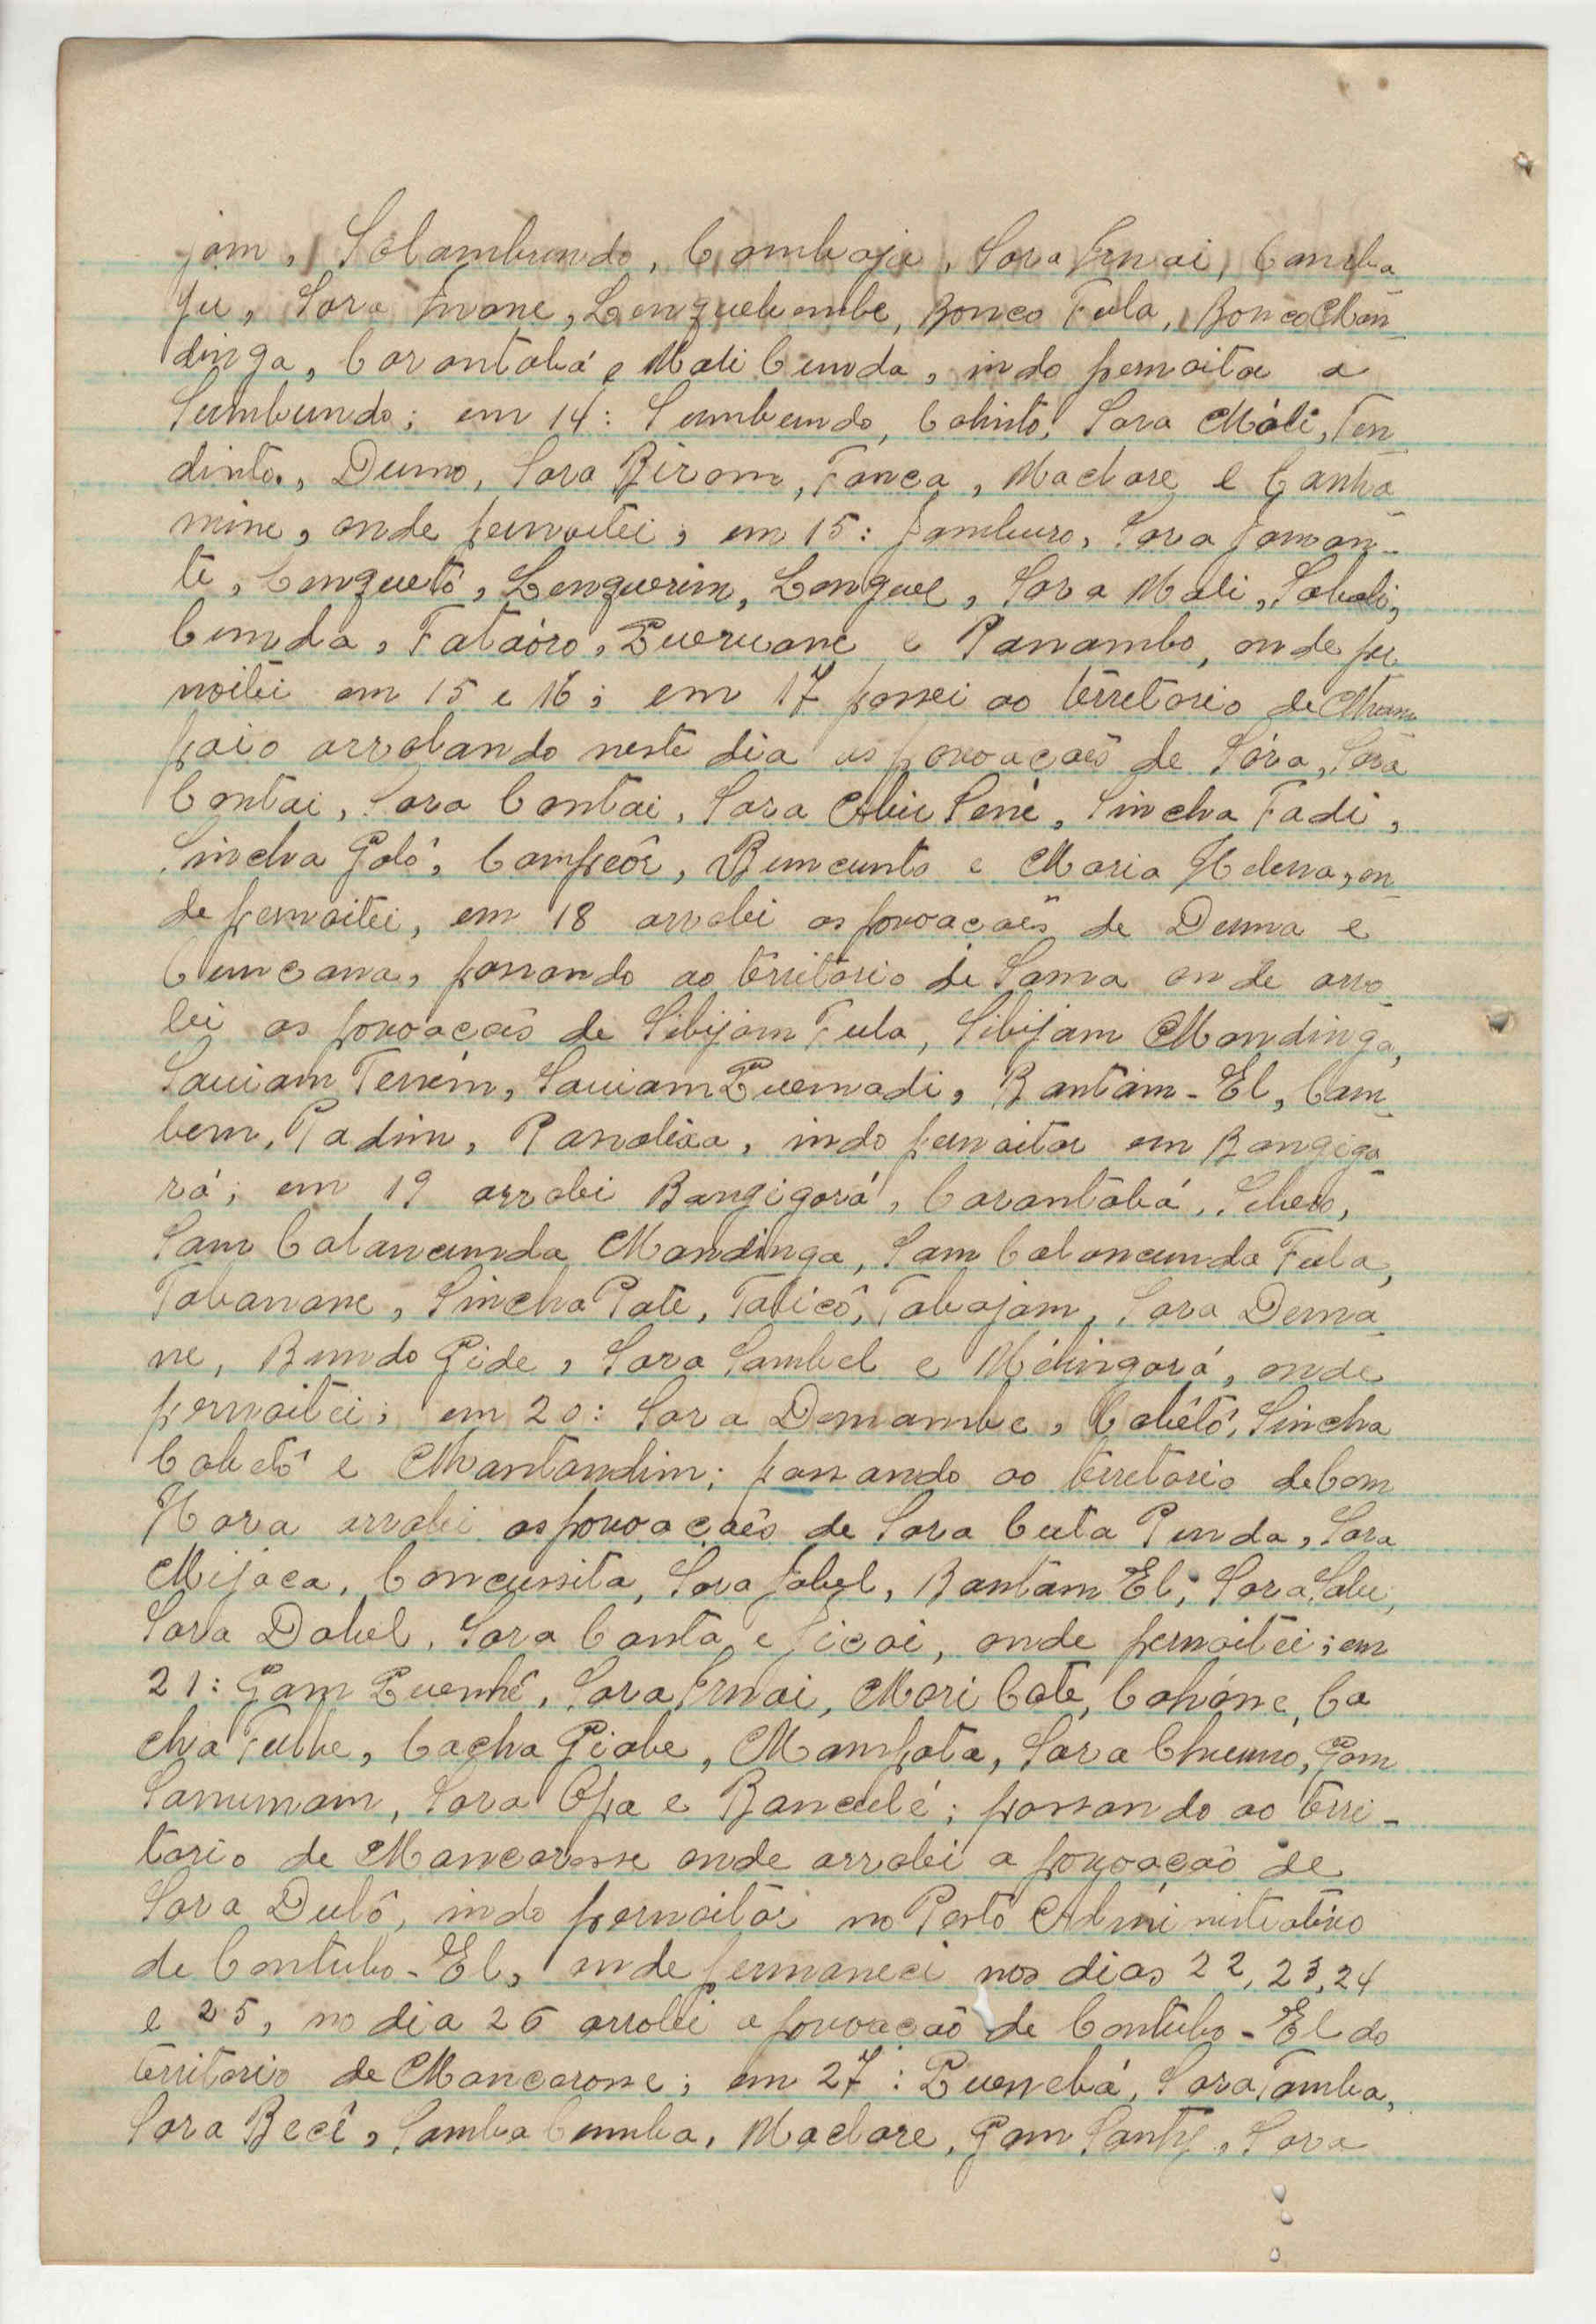 jam, Solambundo, Cambaju, Sara Ernai, Camba
ju, Sara Mone, Lenguebembe, Bonco Fula, Bonco Man-
dinga, Carantabá e Mali Cunda, indo pernoitar a
Sumbundo; em 14: Sumbundo, Cabintó, Sara Máli, Ten-
dinto, Dumo, Sara Birom, Fanca, Maclare e Canha-
mine, onde pernoitei; em 15: Jamburo, Sara Jaman-
te, Canquetó, Lenguerim, Lenguel, Sara Mali, Sabali,
Cunda, Fataóro, Queruane e Panambo, onde per-
noitei em 15 e 16; em 17 passei ao territorio de Cham
paio arrolando neste dia as povoações de Sára, Sara
Contai, Sara Contai, Sara Abu Sené, Sincha Fadi,
Sincha Goló, Campeôr, Buncunto e Maria Helena, on-
de pernoitei, em 18 arrolei as povoações de Duma e
Cuncana, passando ao territorio de Sama onde arro-
lei as povoações de Sibijam Fula, Sibijam Mandinga,
Sauiam Tenem, Sauiam Quemadi, Bantám-El, Cam-
bem, Padim, Panolixa, indo pernoitar em Bangiga-
rá; em 19 arrolei Bangigorá, Carantabá, Sibero,
Sam Calancunda Mandinga, Sam Calancunda Fula,
Tabanane, Sincha Pate, Talicó, Tabajam, Sara Dema-
ne, Bundo Gide, Sara Sambel e Medingará, onde
pernoitei; em 20: Sara Demambe, Cabêtó, Sincha
Cabetó e Mantandim; passando ao territorio de Com
Hara arrolei as povoações de Sara Cuta Penda, Sara
Mijaca, Concussita, Sara Jabel, Bantám El, Sara Sabu,
Sara Dabel, Sara Canta e Jicai, onde pernoitei; em
21: Gam Quenhê, Sara Ernai, Mari Cate, Cahane, Ca
cha Fulbe, Cacha Giobe, Mampata, Sara Chuma, Gam
Sanumam, Sara Opa e Banculé; passando ao terri-
torio de Mancarosse onde arrolei a povoação de
Sara Dulô, indo pernoitar no Posto Administrativo
de Contubo-El, onde permaneci nos dias 22, 23, 24
e 25, no dia 26 arrolei a povoação de Contubo-El do
territorio de Mancarosse; em 27: Quenebá, Sara Tamba,
Sara Becê, Samba Cumba, Maclare, Gam Santy, Sara